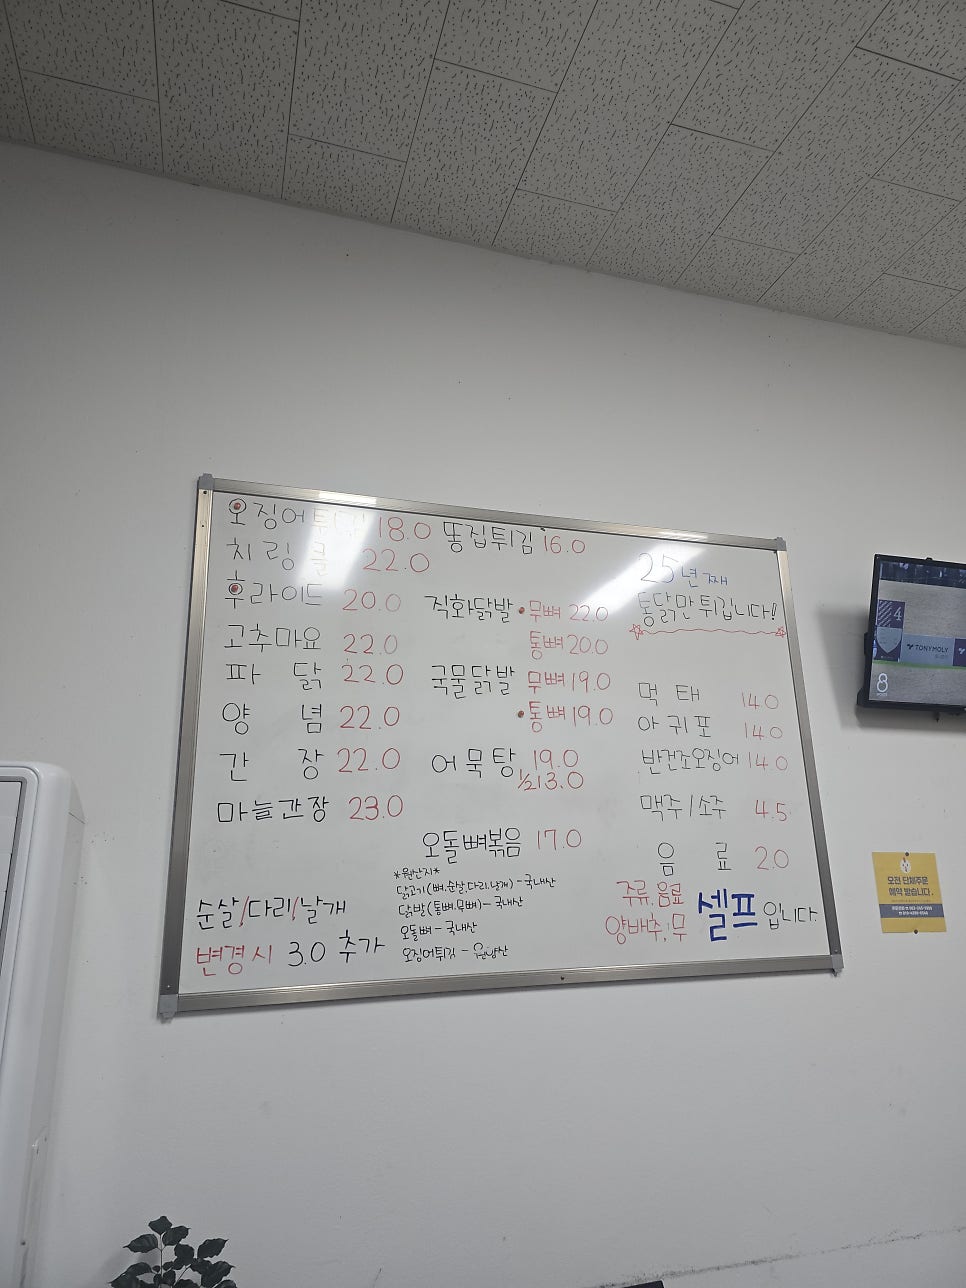 오징어튀김 18.0
치링클 22.0
후라이드 20.0
고추마요 22.0
파 닭 22.0
양 념 22.0
간 장 22.0
마늘간장 23.0
순살/다리/날개
변경시 3.0 추가
똥집튀김 16.0
직화닭발 무뼈 22.0
통뼈 20.0
국물닭발 무뼈 19.0
통뼈 19.0
어묵탕 19.0
1/2 13.0
오돌뼈볶음 17.0
*원산지*
닭고기(뼈.순살.다리.날개) - 국내산
닭발(통뼈.무뼈) - 국내산
오돌뼈 - 국내산
오징어튀김 -
25년째
통닭만 튀깁니다!
먹 태 14.0
아귀포 14.0
반건조오징어 14.0
맥주/소주 4.5
음 료 2.0
주류.음료
양배추.무 셀프입니다
4
TONYMOLY
8
오전 단체주문
예약 받습니다.